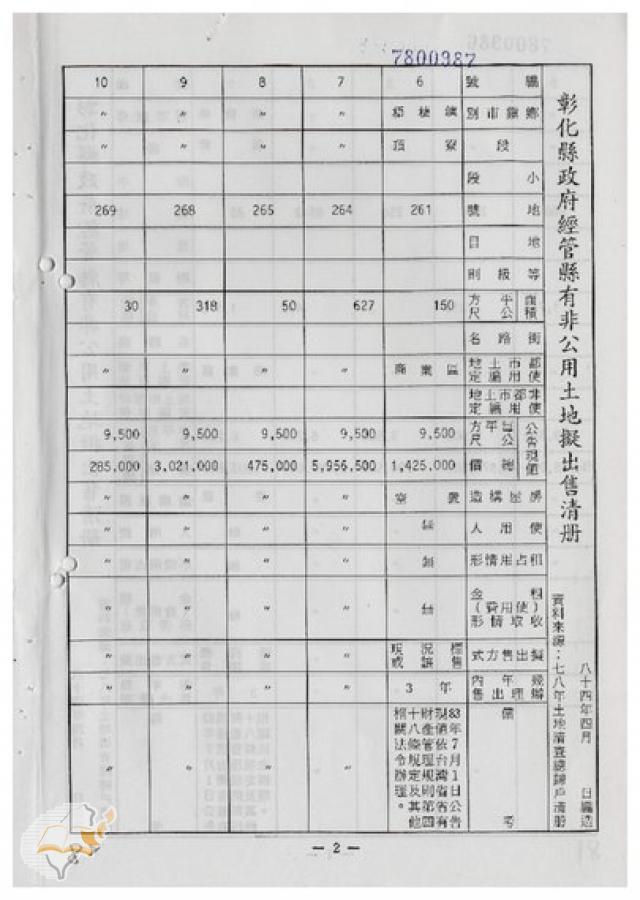 7800987
彰化縣政府經管縣有非公用土地擬出售清册
八十四年四月　日編造
資料來源：七八年土地清查總歸戶清册
編號 6 7 8 9 10
鄉鎮市別 梧棲鎮 〃 〃 〃 〃
段 頂寮 〃 〃 〃 〃
小段
地號 261 264 265 268 269
地目
等級別
面積 平方公尺 150 627 50 318 30
街路名
都市土地使用編定 商業區 〃 〃 〃 〃
非都市土地使用編定
公告現值 每平方公尺 9,500 9,500 9,500 9,500 9,500
總價 1,425,000 5,956,500 475,000 3,021,000 285,000
房屋構造 空置 〃 〃 〃 〃
使用人 無 〃 〃 〃 〃
租占用情形 無 〃 〃 〃 〃
租金（使用費）收取情形 無 〃 〃 〃 〃
擬出售方式 現況標售或讓售 〃 〃 〃 〃
幾年內辦理出售 3年 〃 〃 〃 〃
備考 83年7月1日公告現值依台灣省省有財產管理規則第四十八條規定及其他相關法令辦理。 〃 〃 〃 〃
— 2 —